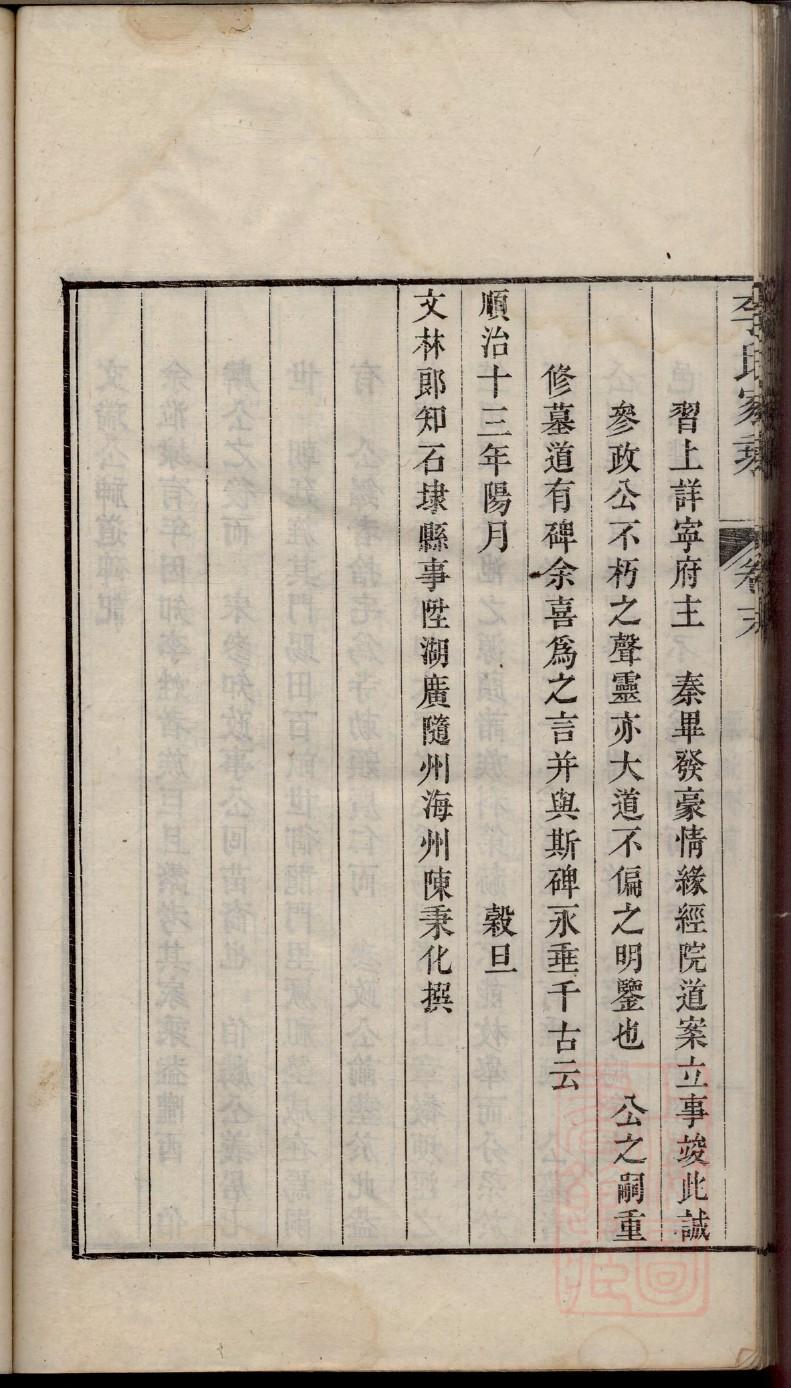 李氏家乘 卷末
習上詳寧府主　秦畢發豪情緣經院道案立事竣此誠
參政公不朽之聲靈亦大道不偏之明鑒也　公之嗣重
修墓道有碑余喜爲之言并與斯碑永垂千古云
順治十三年陽月　穀旦
文林郎知石埭縣事陞湖廣隨州海州陳秉化撰